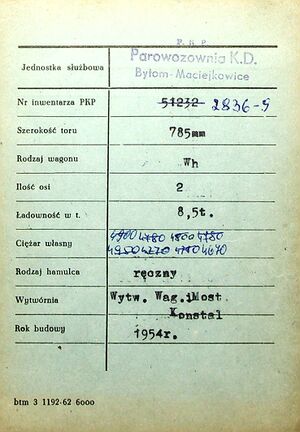 P. K. P.
Jednostka służbowa Parowozownia K.D.
Bytom-Maciejkowice
Nr inwentarza PKP 51232 2836-S
Szerokość toru 785mm
Rodzaj wagonu Wh
Ilość osi 2
Ładowność w t. 8,5t.
Ciężar własny 4900 4780 4800 4780
4950 4270 4710 4670
Rodzaj hamulca ręczny
Wytwórnia Wytw. Wag.iMost
Konstal
Rok budowy 1954r.
btm 3 1192-62 6000